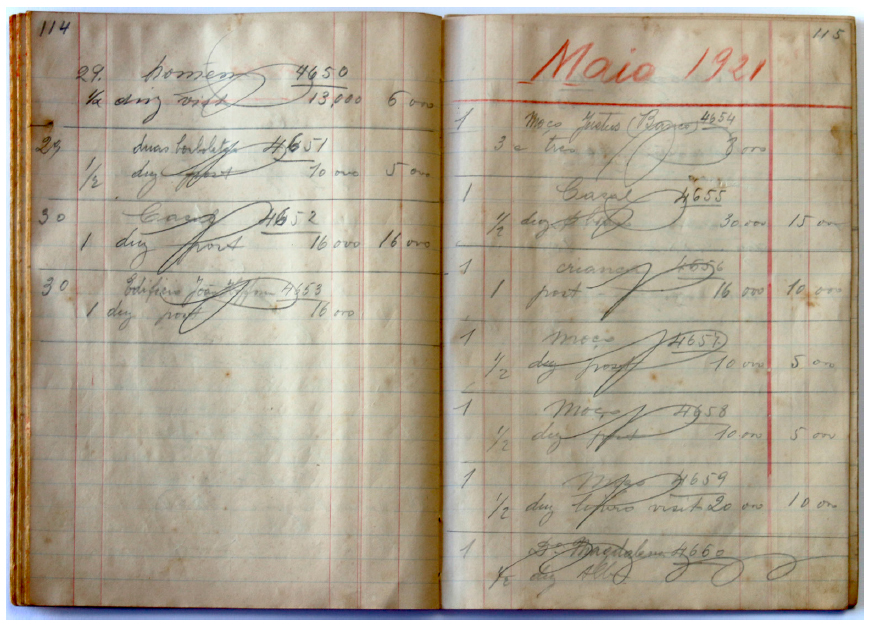 114
29. homem 4650
1/2 duz visit 13,000 6 000
29 duas 4651
1/2 duz post 10 000 5 000
30 Casal 4652
1 duz post 16 000 16 000
30 Edificio João 4653
1 duz post 16 000
115
Maio 1921
1 Moço (Banco) 4654
3 e tres 3 000
1 Casal 4655
1/2 duz 30 000 15 000
1 criança 4656
1 post 16 000 10 000
1 Moço 4657
1/2 duz post 10 000 5 000
1 Moço 4658
1/2 duz post 10 000 5 000
1 4659
1/2 duz visit 20 000 10 000
1 Da Magdalena 4660
1/2 duz